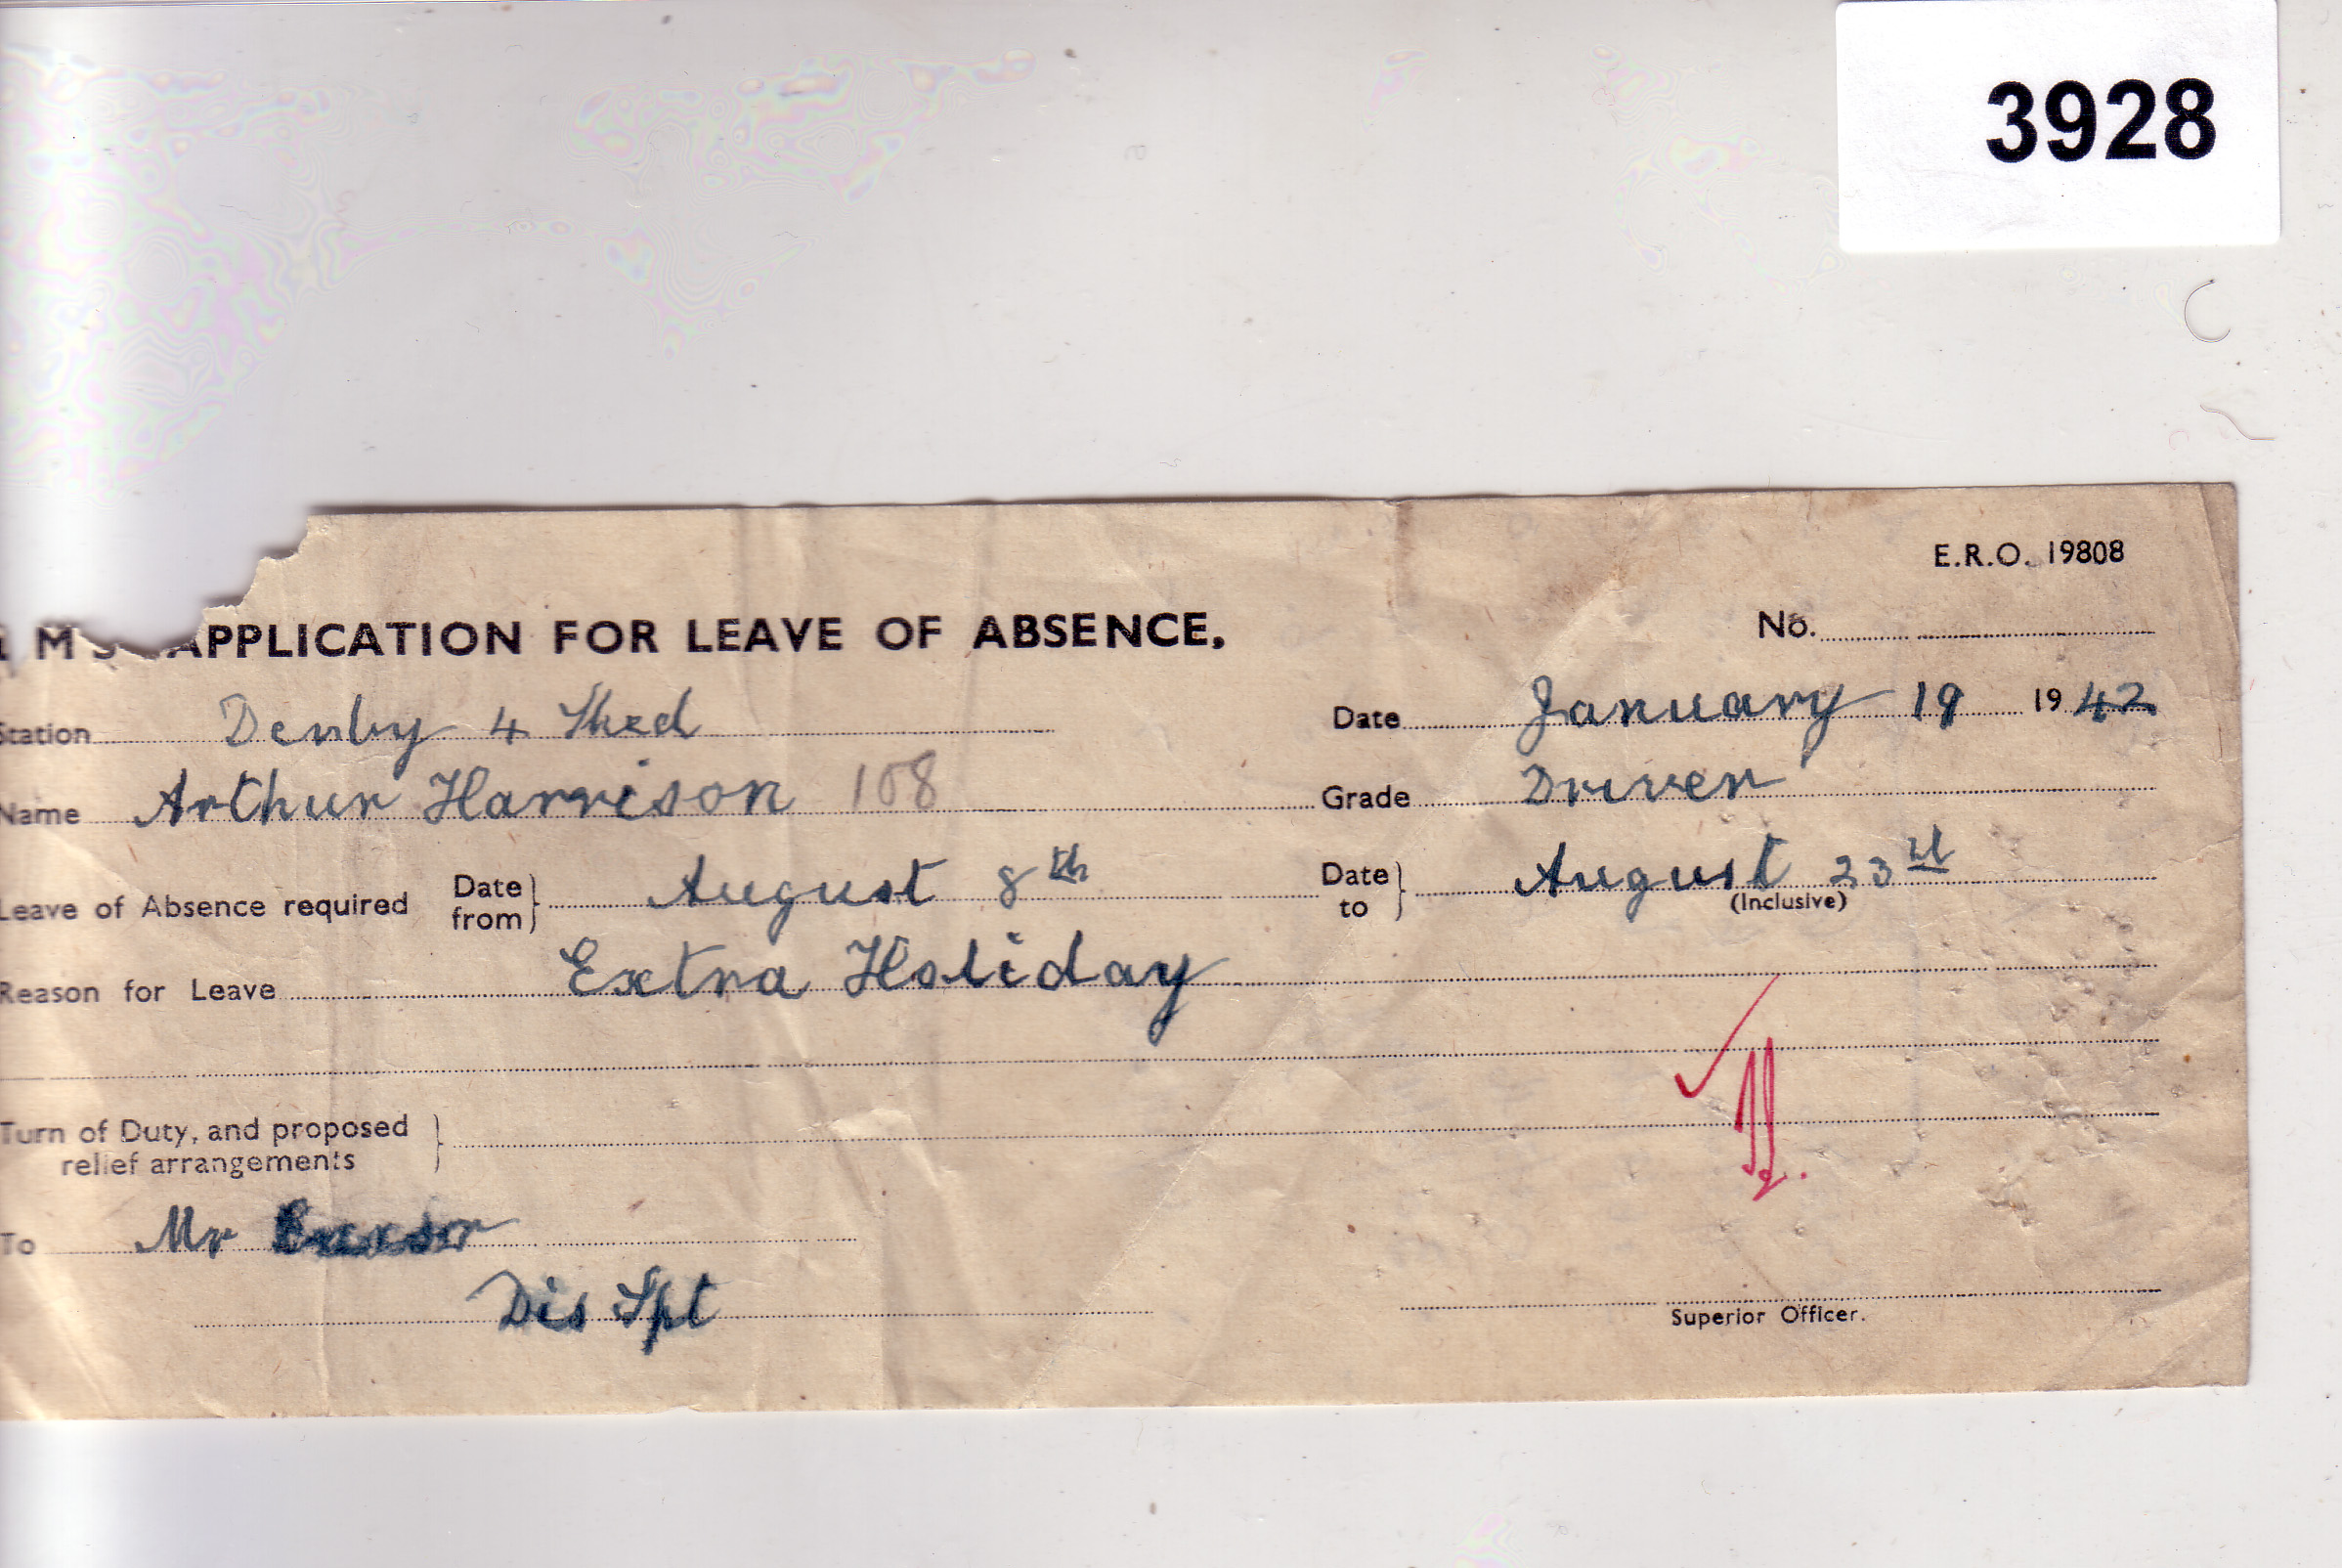 3928
E.R.O. 19808
L M S APPLICATION FOR LEAVE OF ABSENCE.
No.
Station Denby 4 Shed Date January 19 1942
Name Arthur Harrison 108 Grade Driver
Leave of Absence required Date from August 8th Date to August 23rd (Inclusive)
Reason for Leave Extra Holiday
Turn of Duty, and proposed
relief arrangements
To Mr
Dis Spt
Superior Officer.